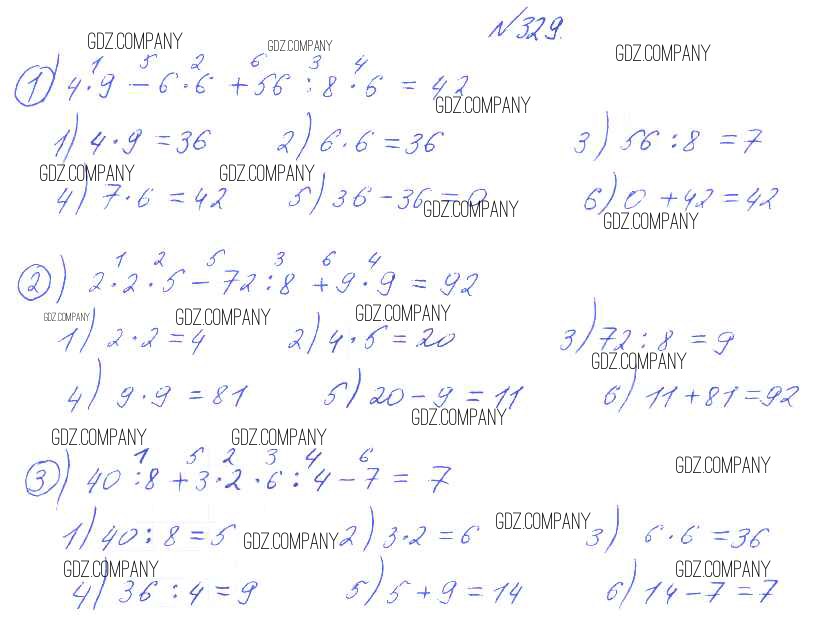 №329.
GDZ.COMPANY GDZ.COMPANY GDZ.COMPANY
1 5 2 6 3 4
1) 4·9 − 6·6 + 56 : 8 · 6 = 42
GDZ.COMPANY
1) 4·9 = 36 2) 6·6 = 36 3) 56 : 8 = 7
GDZ.COMPANY GDZ.COMPANY
4) 7·6 = 42 5) 36 − 36 = 0 6) 0 + 42 = 42
GDZ.COMPANY GDZ.COMPANY
1 2 5 3 6 4
2) 2·2·5 − 72 : 8 + 9·9 = 92
GDZ.COMPANY GDZ.COMPANY GDZ.COMPANY
1) 2·2 = 4 2) 4·5 = 20 3) 72 : 8 = 9
GDZ.COMPANY
4) 9·9 = 81 5) 20 − 9 = 11 6) 11 + 81 = 92
GDZ.COMPANY
GDZ.COMPANY GDZ.COMPANY
1 5 2 3 4 6
GDZ.COMPANY
3) 40 : 8 + 3·2·6 : 4 − 7 = 7
GDZ.COMPANY
1) 40 : 8 = 5 2) 3·2 = 6 3) 6·6 = 36
GDZ.COMPANY
GDZ.COMPANY GDZ.COMPANY
4) 36 : 4 = 9 5) 5 + 9 = 14 6) 14 − 7 = 7